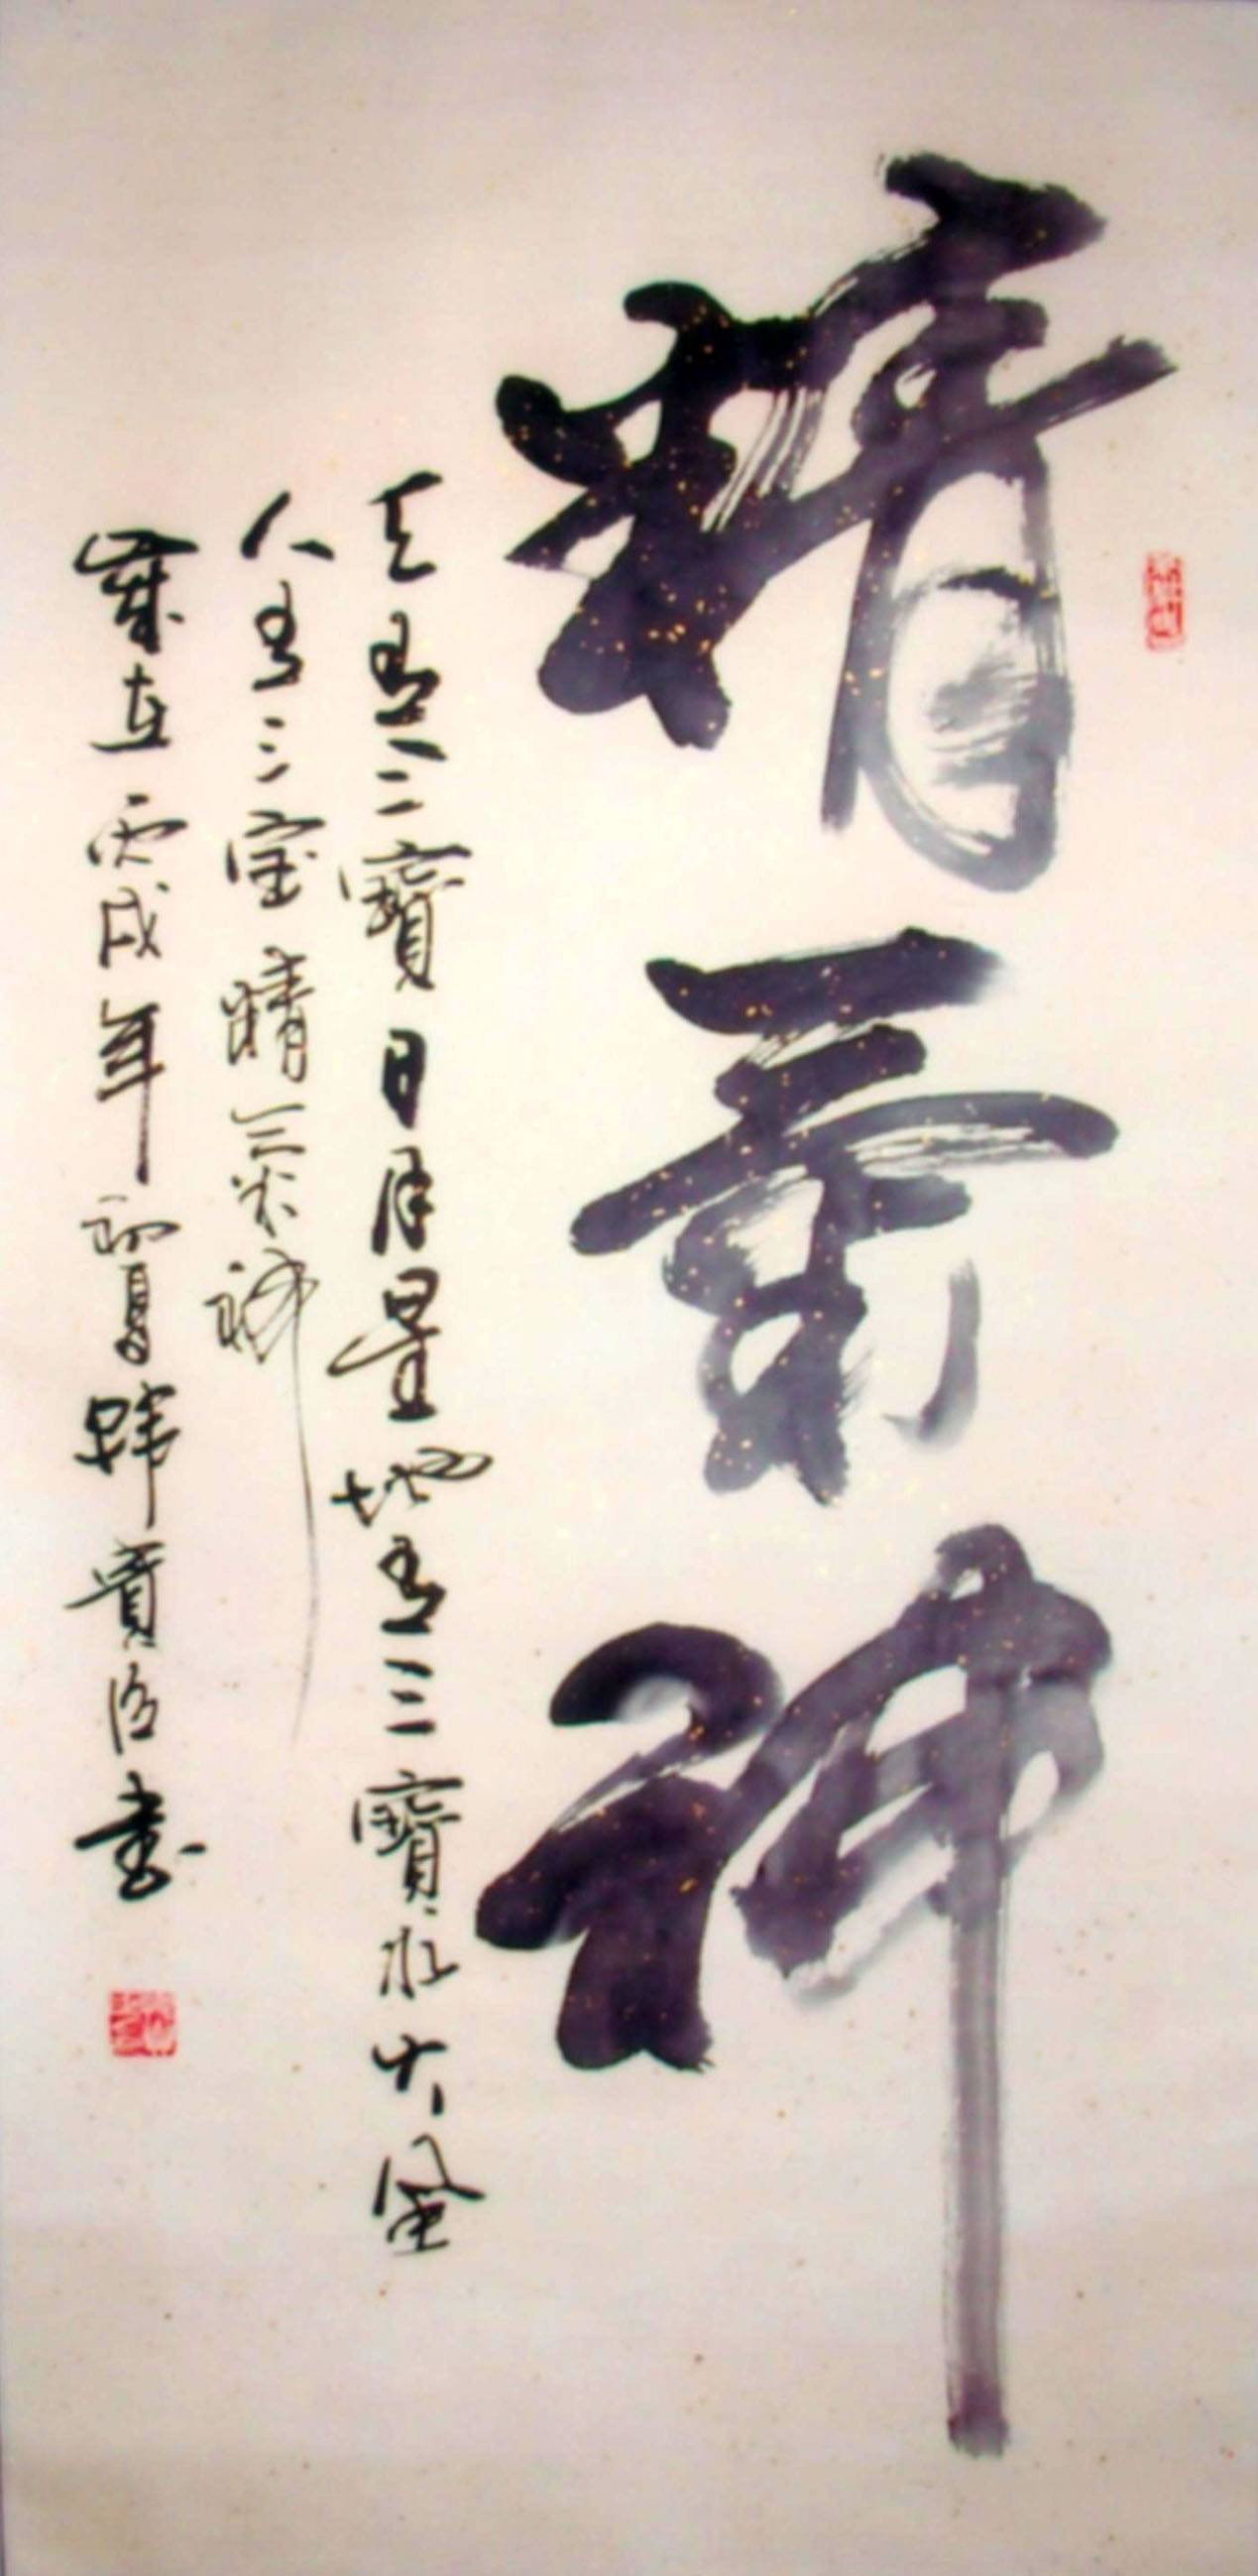 精氣神
天有三寶日月星地有三寶水火風
人有三宝精氣神
歲在丙戌年初夏韓書